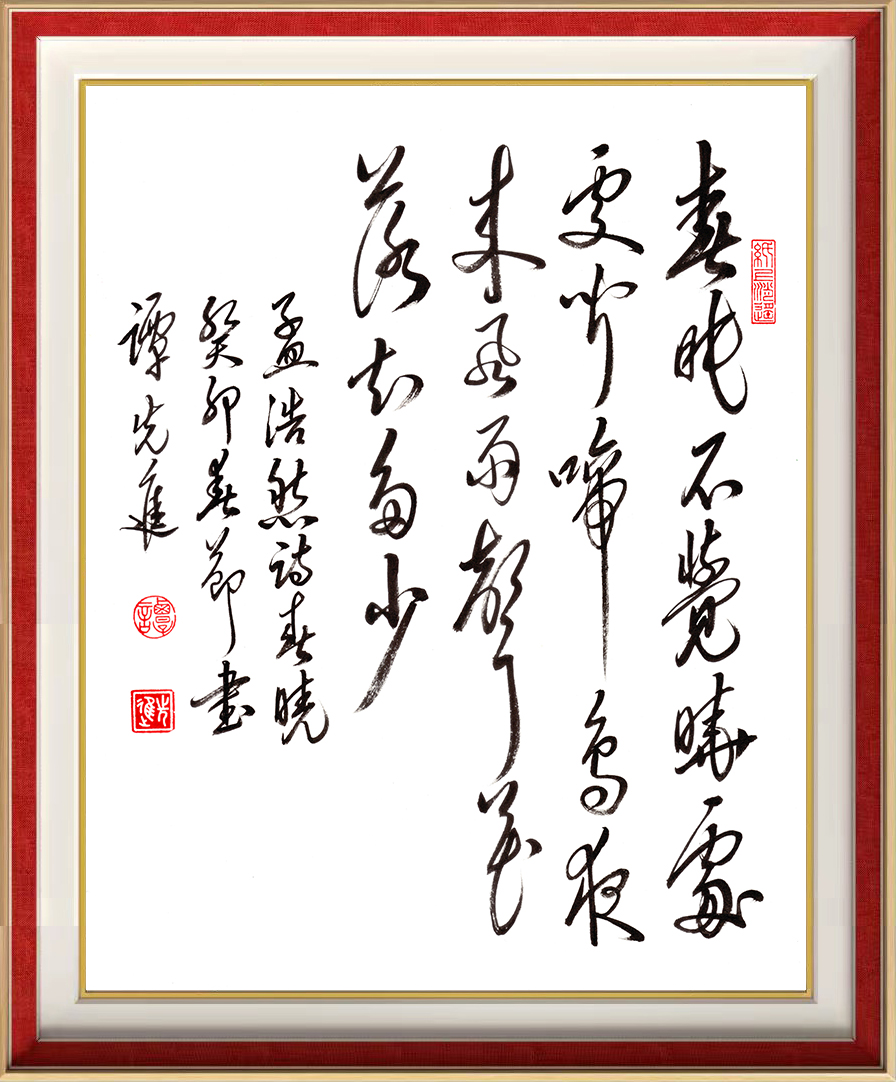 春眠不覺曉處
處聞啼鳥夜
来風雨聲花
落知多少
孟浩然詩春曉
癸卯春節書
譚先進
譚
先進